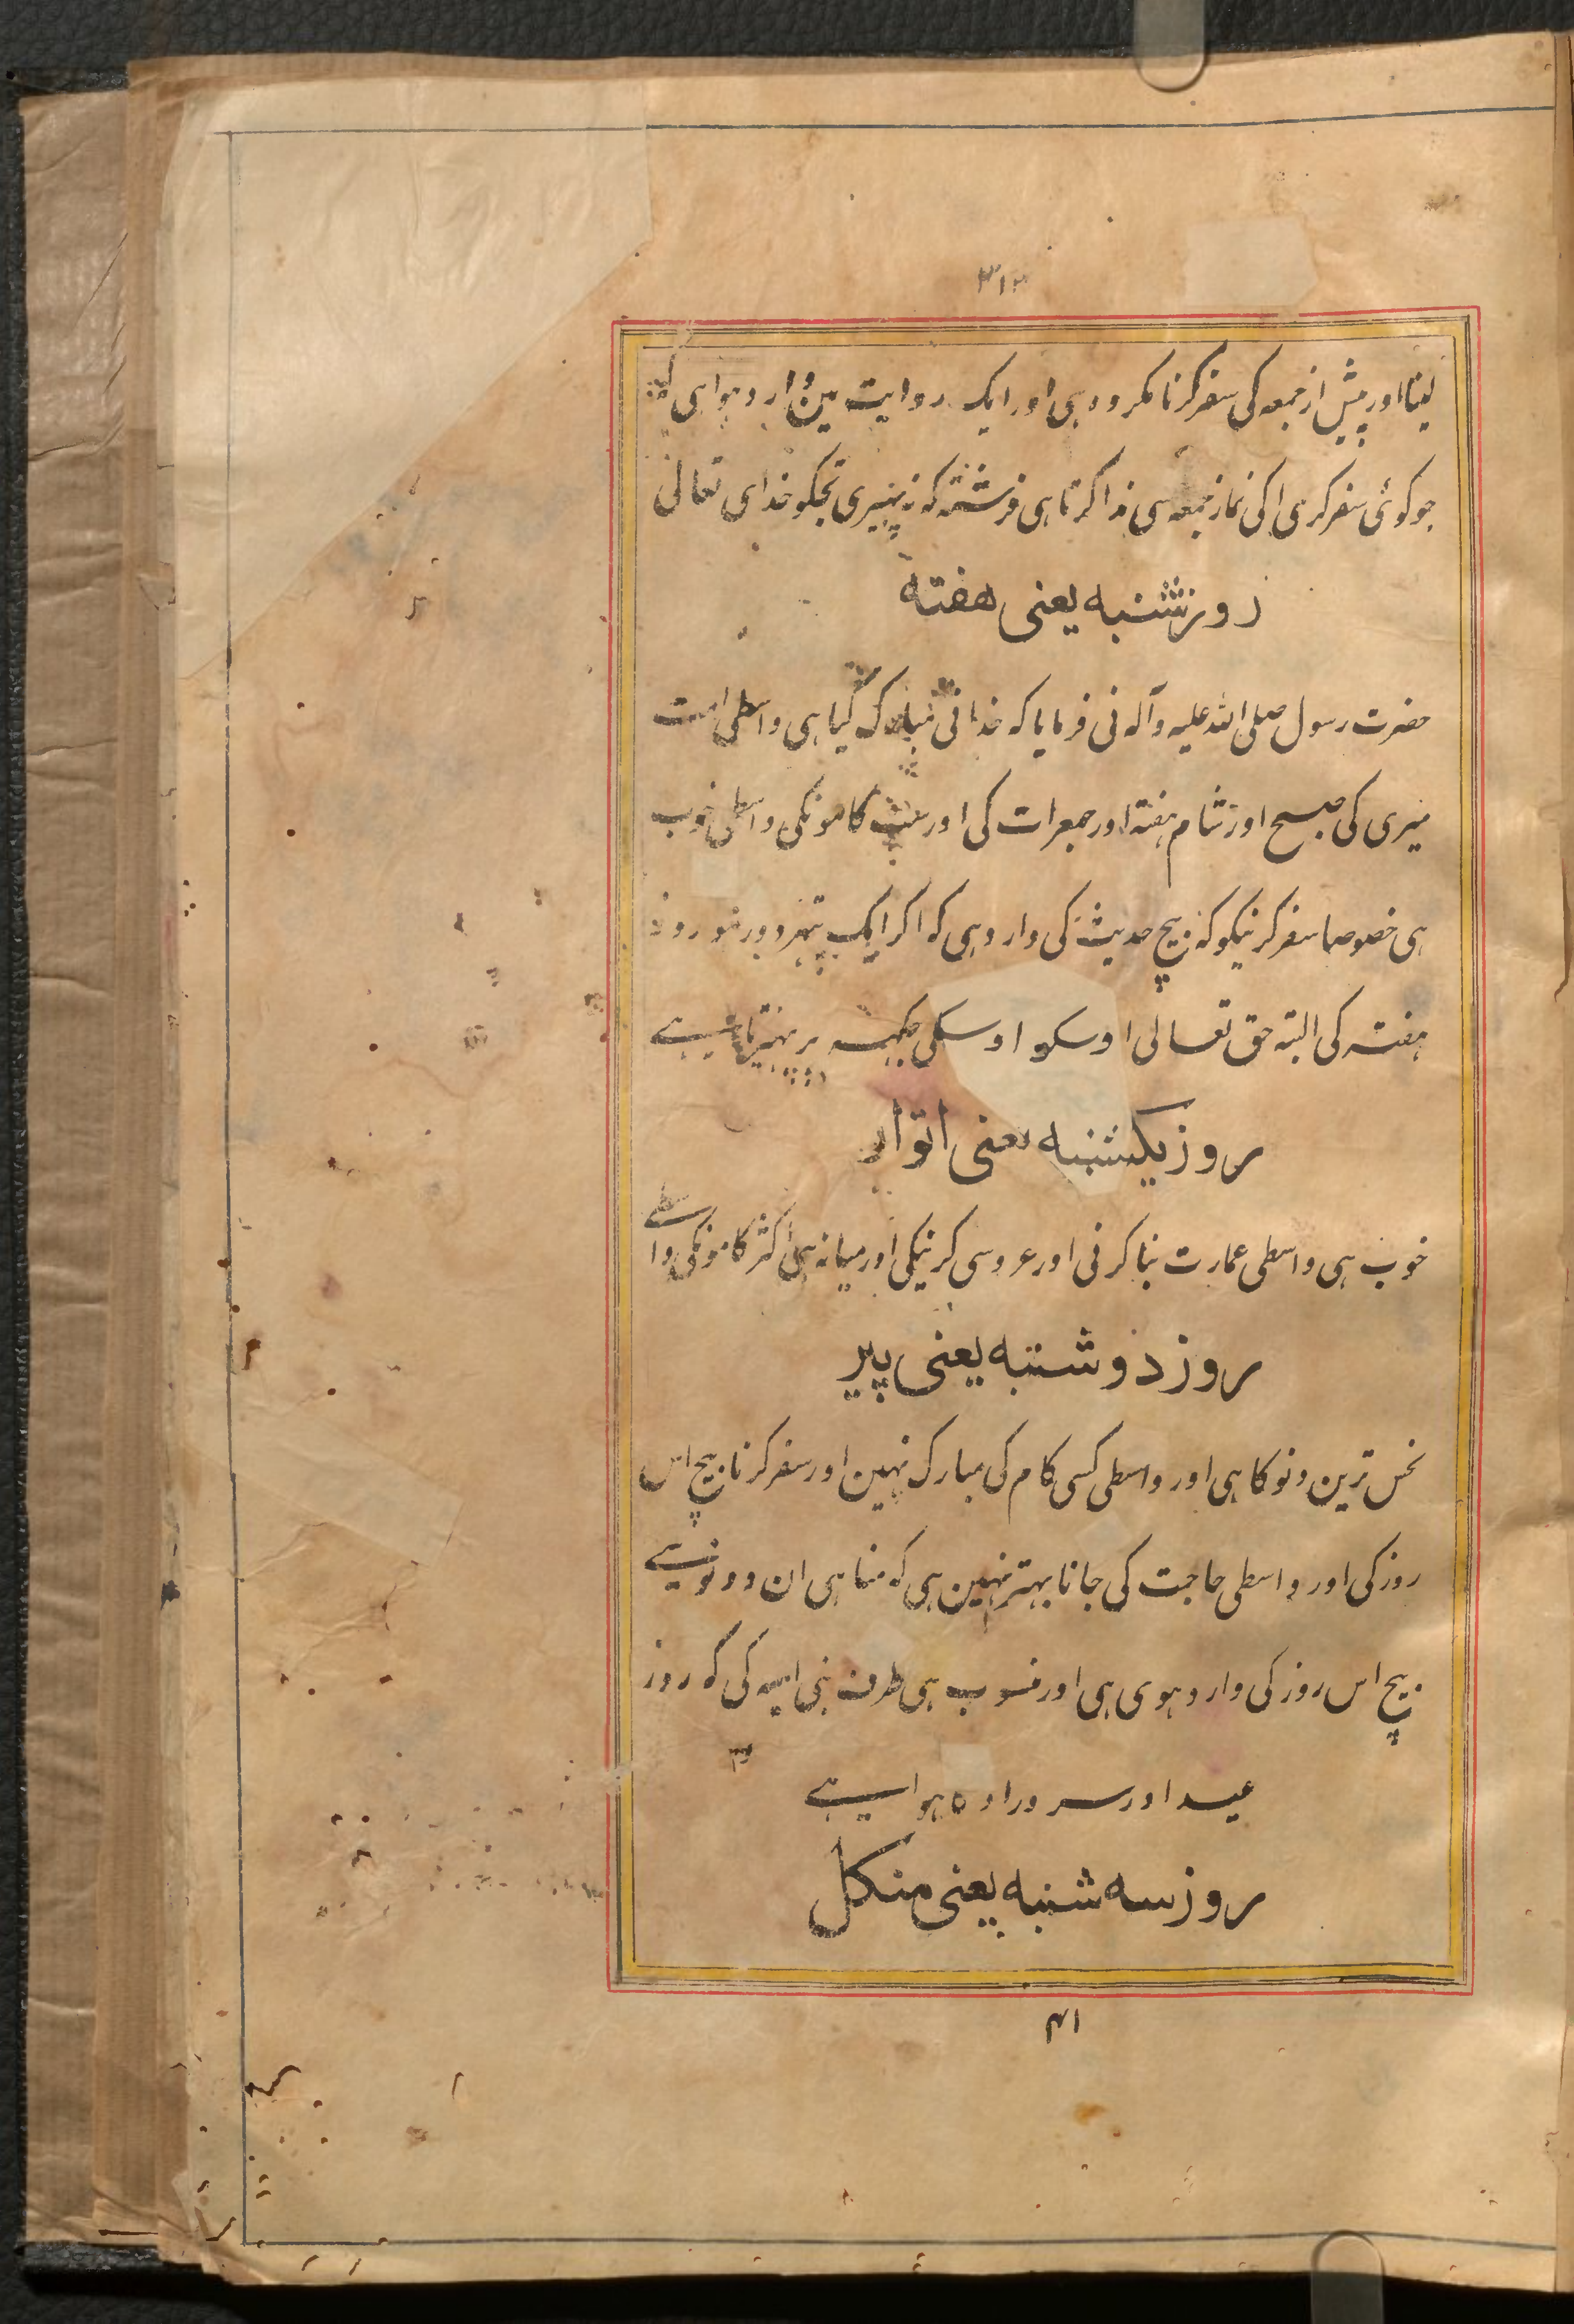 ۳۱۲
لینا اور پیش از جمعہ کی سفر کرنا مکروہ ہی اور ایک روایت مین وارد ہوا ہی کہ
جو کوئی سفر کری اکی نماز جمعہ سی ندا کرتا ہی فرشتہ کہ نہ پہیری تجکو خدای تعالی
روز شنبہ یعنی هفتہ
حضرت رسول صلی اللہ علیہ وآلہ نی فرمایا کہ خدا نی مبارک کیا ہی واسطی امت
میری کی صبح اور شام ہفتہ اور جمعرات کی اور سب کامونکی واسطی خوب
ہی خصوصا سفر کرنیکو کہ بیچ حدیث کی وارد ہی کہ اکر ایک پتہر دور ہو روز
ہفتہ کی البتہ حق تعالی اوسکو اوسکی جکہہ پر پہیرتا ہے
روز یکشنبہ یعنی اتوار
خوب ہی واسطی عمارت بنا کرنی اور عروسی کرنیکی اور میانہ ہی اکثر کامونکی واسطے
روز دوشنبہ یعنی پیر
نحس ترین دنو کا ہی اور واسطی کسی کام کی مبارک نہین اور سفر کرنا بیچ اس
روز کی اور واسطی حاجت کی جانا بہتر نہین ہی کہ مناہی ان دونوسے
بیچ اس روز کی وارد ہوی ہی اور منسوب ہی طرف بنی امیہ کی کہ روز
عید اور سرور اوہ ہوا ہے
روز سہ شنبہ یعنی منکل
۴۱